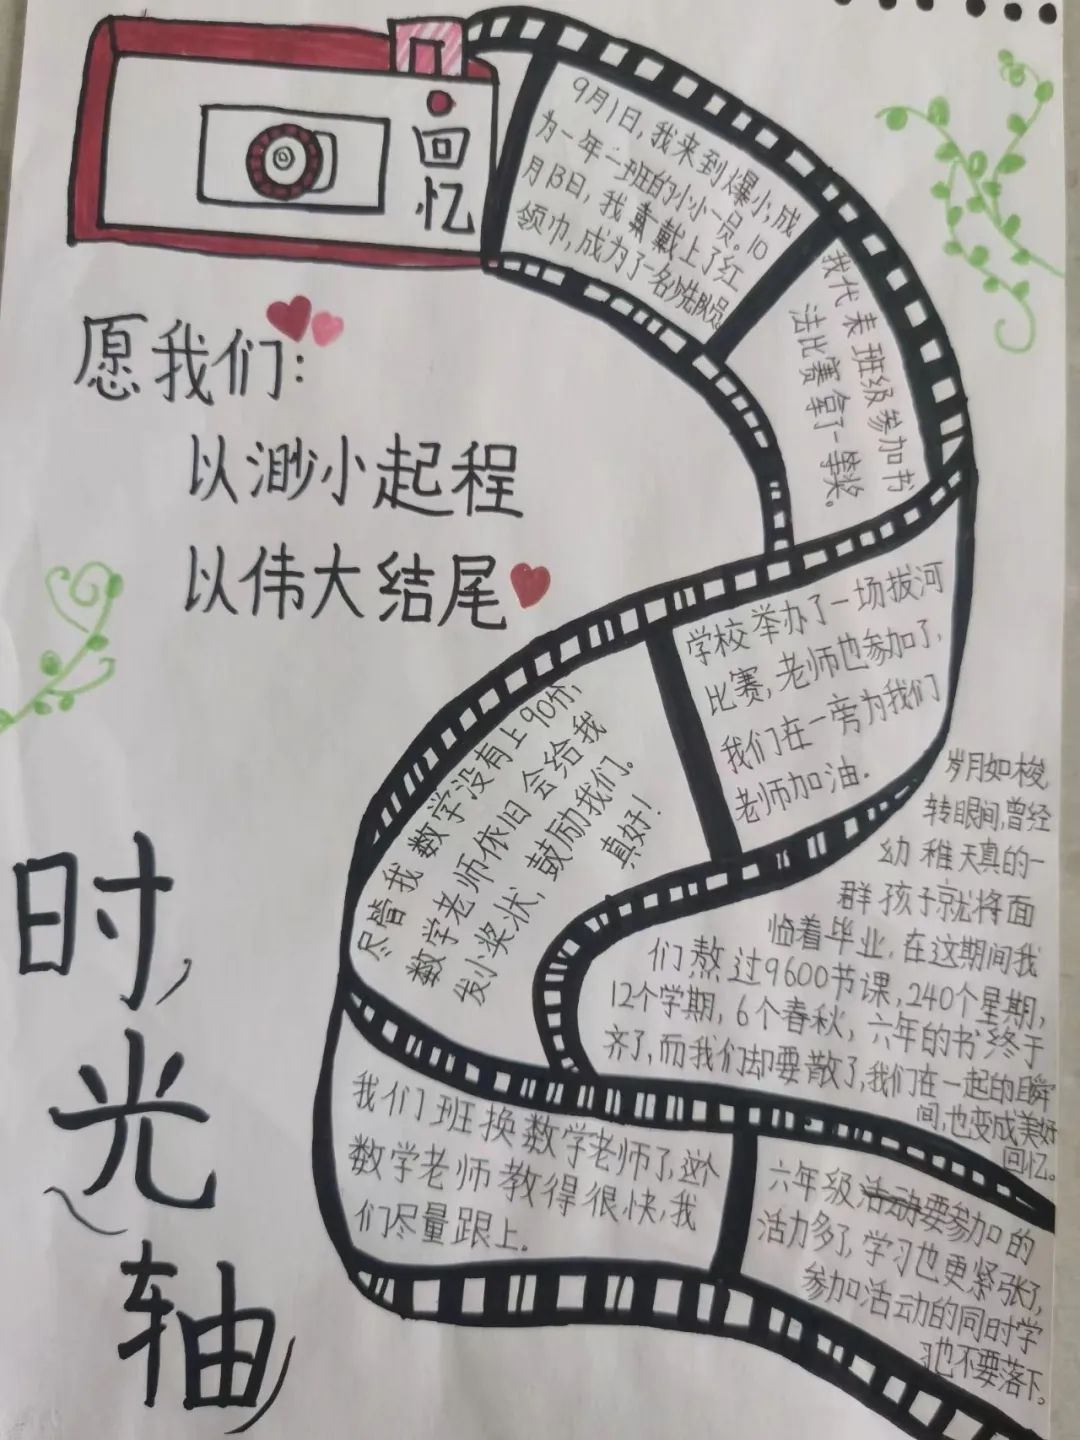 回
忆
9月1日,我来到爆小,成
为一年一班的小小一员。10
月13日,我戴上了红
领巾,成为了一名少先队员
我代表班级参加书
法比赛拿了一等奖。
愿我们:
以渺小起程
以伟大结尾
学校举办了一场拔河
比赛,老师也参加了,
我们在一旁为我们
老师加油.
尽管我数学没有上90分,
数学老师依旧会给我
发小奖状,鼓励我们。
真好!
岁月如梭,
转眼间,曾经
幼稚天真的一
群孩子就将面
临着毕业,在这期间我
们熬过9600节课,240个星期,
12个学期,6个春秋,六年的书终于
齐了,而我们却要散了,我们在一起的瞬
间,也变成美好
回忆。
我们班换数学老师了,这个
数学老师教得很快,我
们尽量跟上.
六年级活动要参加的
活力多了,学习也更紧张了,
参加活动的同时学
习也不要落下。
时
光
轴